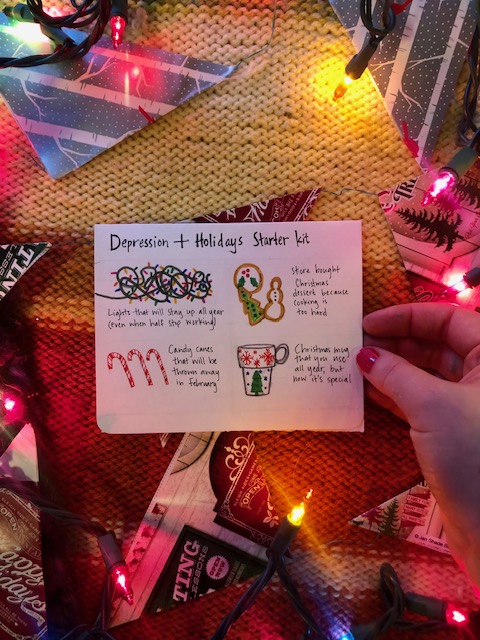 Depression + Holidays Starter kit
Lights that will stay up all year
(even when half stop working)
Store bought
Christmas
dessert because
cooking is
too hard
Candy canes
that will be
thrown away
in february
Christmas mug
that you use
all year, but
now it's special
OPEN
TING
LESSONS
OPEN